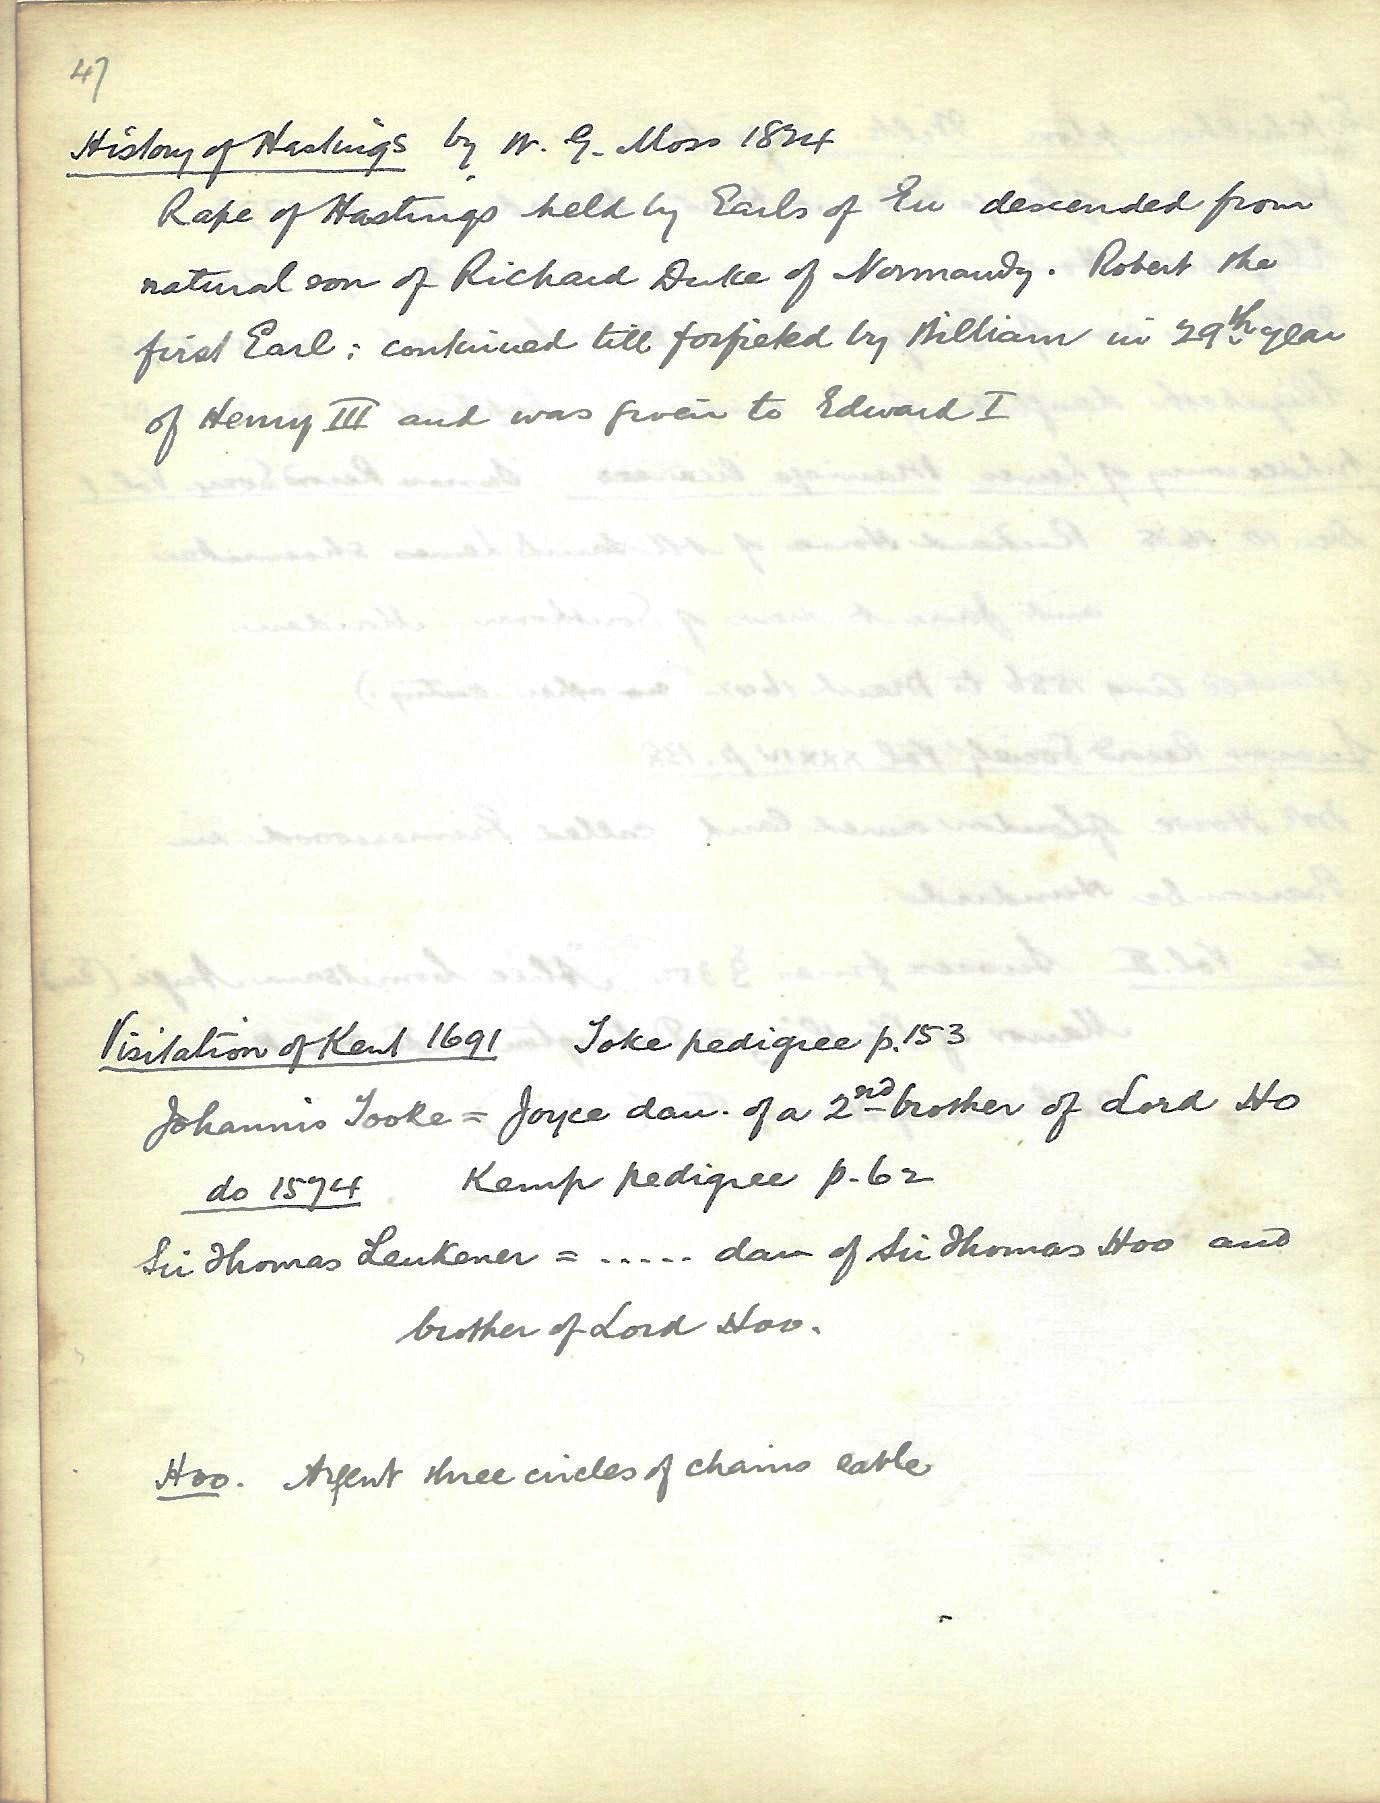 47
History of Hastings by W. G. Moss 1824
Rape of Hastings held by Earls of Eu descended from
natural son of Richard Duke of Normandy. Robert the
first Earl; continued till forfieted by William in 29th year
of Henry III and was given to Edward I
Visitation of Kent 1691 Toke pedigree p.153
Johannis Tooke = Joyce dau. of a 2nd brother of Lord Ho
do 1574 Kemp pedigree p.62
Sir Thomas Leukener = ..... dau of Sir Thomas Hoo and
brother of Lord Hoo.
Hoo. Argent three circles of chains